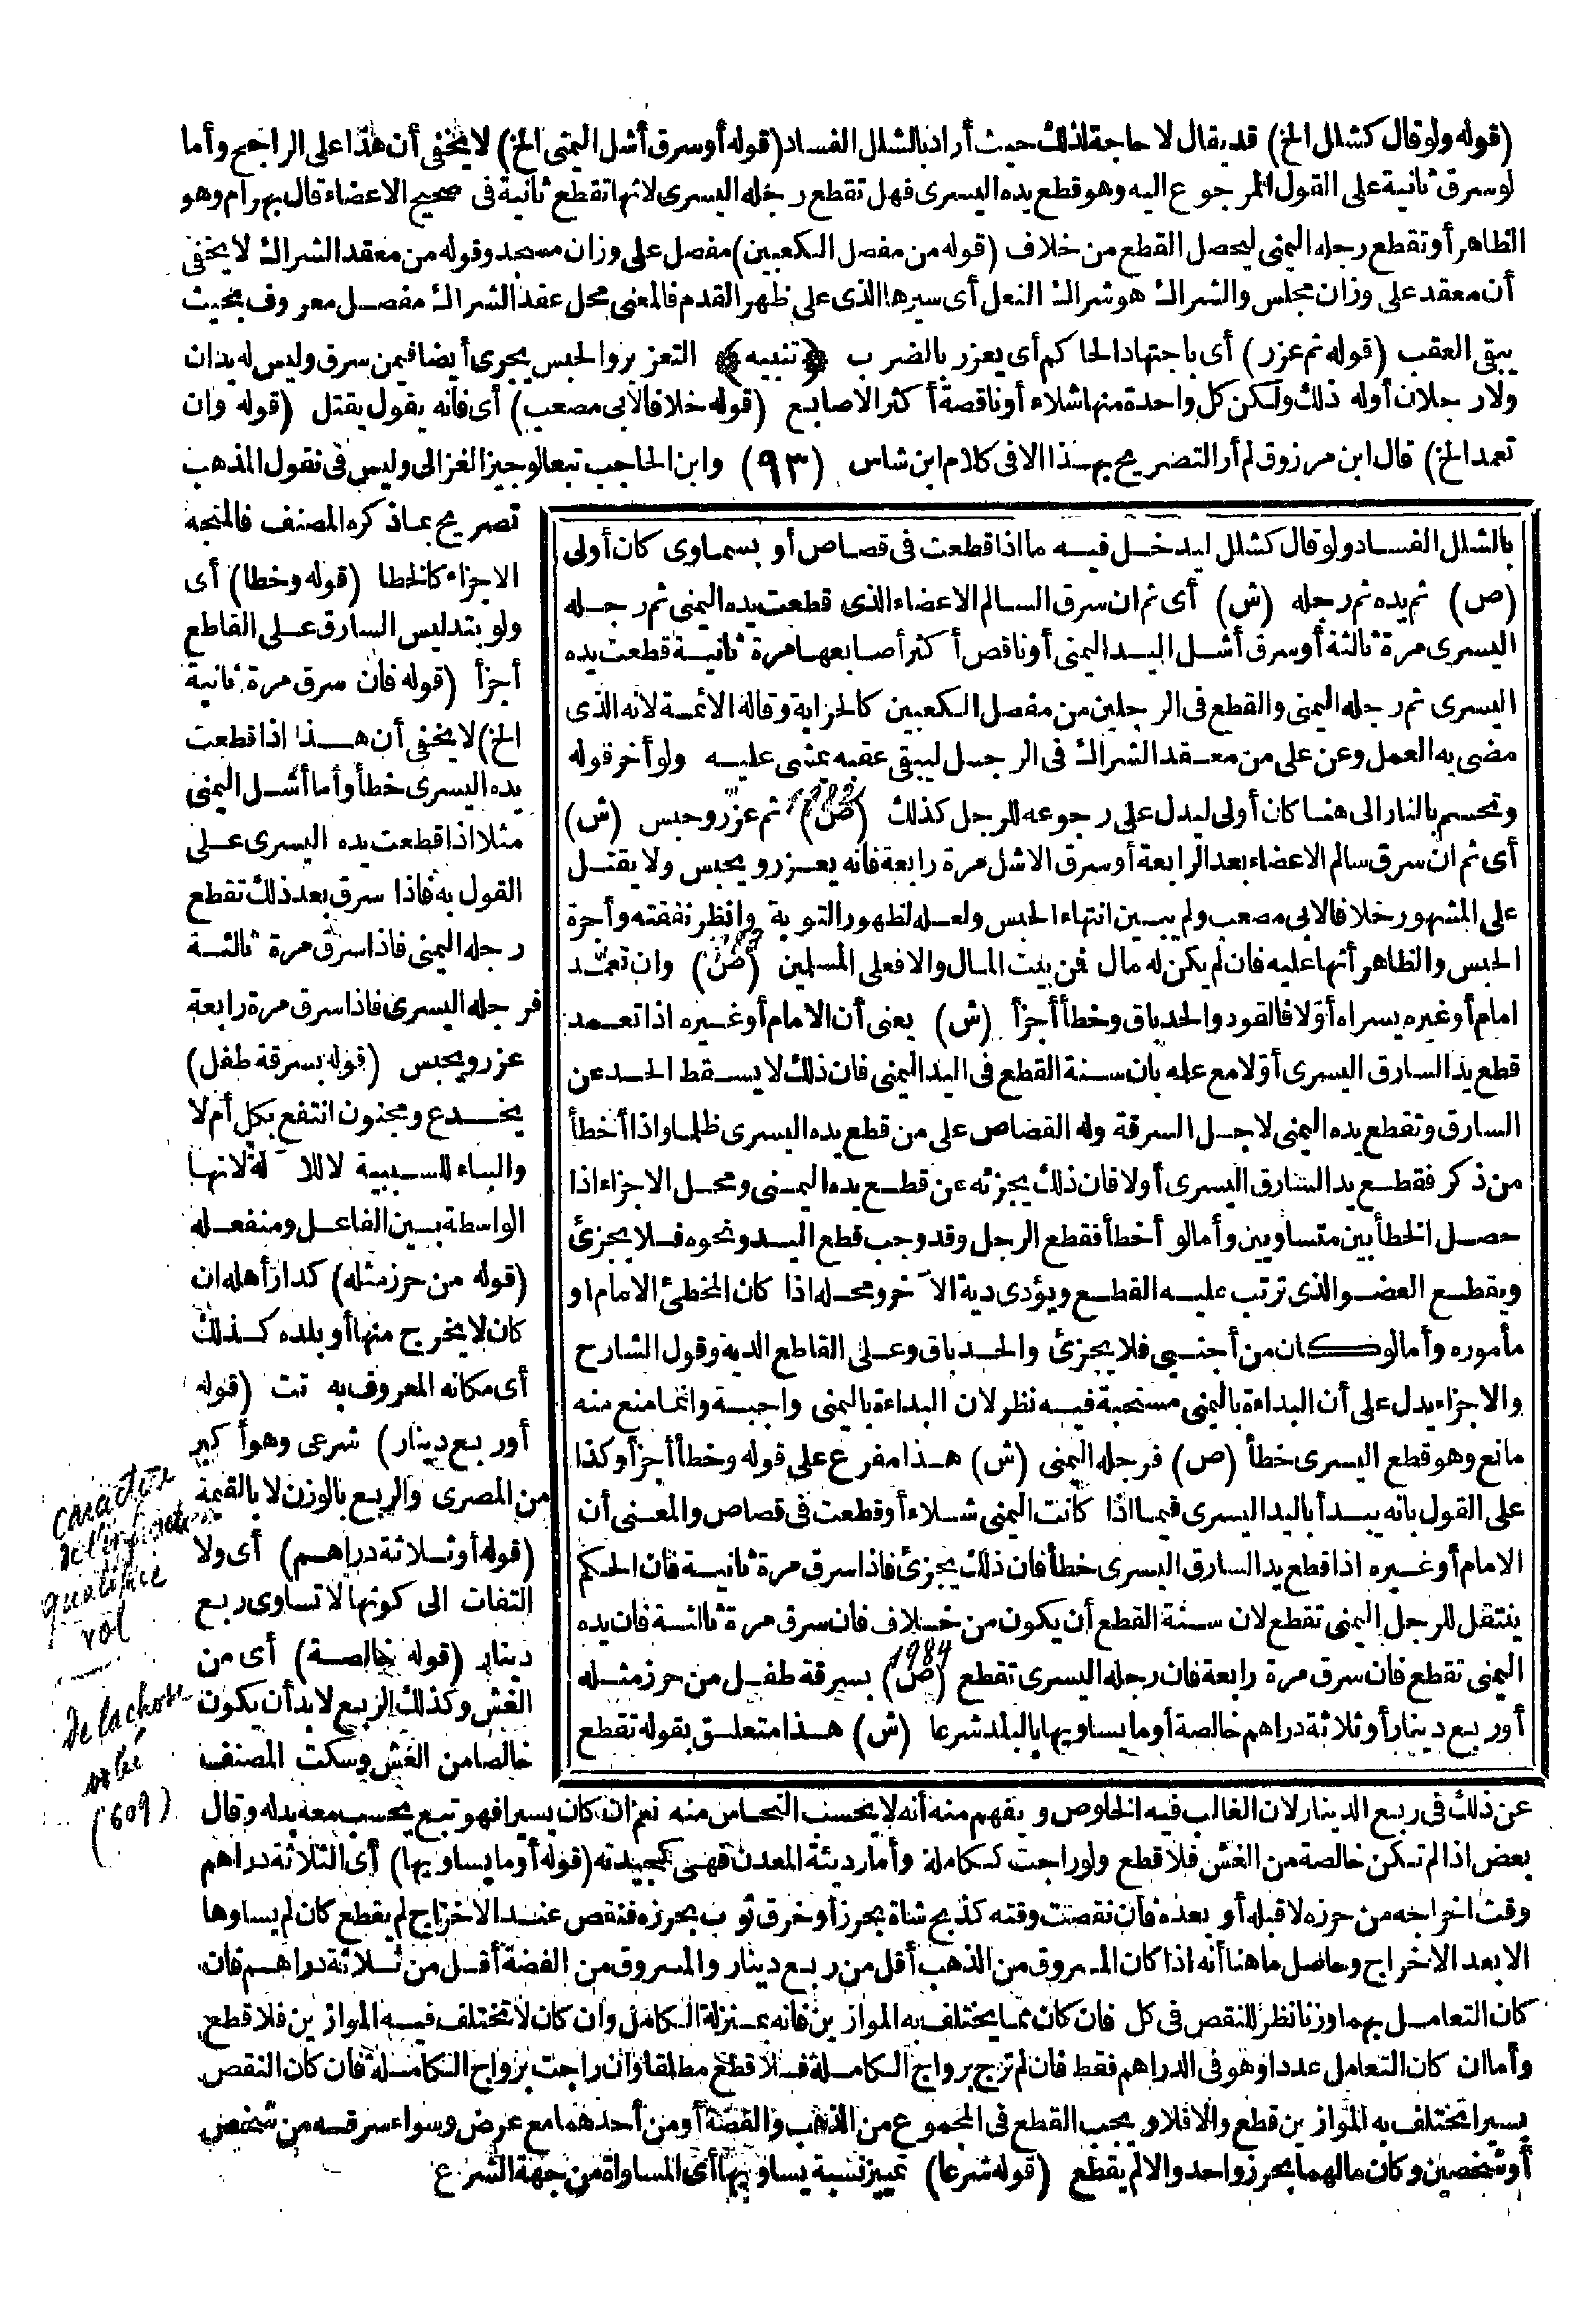 (قوله ولو قال كشلل الخ) قد يقال لا حاجة لذلك حيث أراد بالشلل الفساد (قوله أو سرق أشل اليمنى الخ) لا يخفى أن هذا على الراجح وأما
لو سرق ثانية على القول المرجوع اليه وهو قطع يده اليسرى فهل تقطع رجله اليسرى لانها تقطع ثانية فى صحيح الاعضاء قال بهرام وهو
الظاهر أو تقطع رجله اليمنى ليحصل القطع من خلاف (قوله من مفصل الكعبين) مفصل على وزان مسجد وقوله من معقد الشراك لا يخفى
أن معقد على وزان مجلس والشراك هو شراك النعل أى سيرها الذى على ظهر القدم فالمعنى محل عقد الشراك مفصل معروف بحيث
يبقى العقب (قوله ثم عزر) أى باجتهاد الحاكم أى يعزر بالضرب ﴿تنبيه﴾ التعزير والحبس يجرى أيضا فيمن سرق وليس له يدان
ولا رجلان أوله ذلك ولكن كل واحدة منها شلاء أو ناقصة أكثر الاصابع (قوله خلافا لابى مصعب) أى فانه يقول يقتل (قوله وان
تعمد الخ) قال ابن مرزوق لم أر التصريح بهذا الا فى كلام ابن شاس (٩٣) وابن الحاجب تبعا لوجيز الغزالى وليس فى نقول المذهب
تصريح بما ذكره المصنف فالمتجه
الاجزاء كالخطا (قوله وخطا) أى
ولو بتدليس السارق على القاطع
أجزأ (قوله فان سرق مرة ثانية
الخ) لا يخفى أن هذا اذا قطعت
يده اليسرى خطأ وأما أشل اليمنى
مثلا اذا قطعت يده اليسرى على
القول به فاذا سرق بعد ذلك تقطع
رجله اليمنى فاذا سرق مرة ثالثة
فرجله اليسرى فاذا سرق مرة رابعة
عزر ويحبس (قوله بسرقة طفل)
يخدع ومجنون انتفع بكل أم لا
والباء للسببية لا للآلة لانها
الواسطة بين الفاعل ومنفعله
(قوله من حرز مثله) كدار أهله ان
كان لا يخرج منها أو بلده كذلك
أى مكانه المعروف به تت (قوله
أو ربع دينار) شرعى وهو أكبر
من المصرى والربع بالوزن لا بالقيمة
(قوله أو ثلاثة دراهم) أى ولا
التفات الى كونها لا تساوى ربع
دينار (قوله خالصة) أى من
الغش وكذلك الربع لا بد أن يكون
خالصا من الغش وسكت المصنف
بالشلل الفساد ولو قال كشلل ليدخل فيه ما اذا قطعت فى قصاص أو بسماوى كان أولى
(ص) ثم يده ثم رجله (ش) أى ثم ان سرق السالم الاعضاء الذى قطعت يده اليمنى ثم رجله
اليسرى مرة ثالثة أو سرق أشل اليد اليمنى أو ناقص أكثر أصابعها مرة ثانية قطعت يده
اليسرى ثم رجله اليمنى والقطع فى الرجلين من مفصل الكعبين كالحرابة وقاله الائمة لانه الذى
مضى به العمل وعن على من معقد الشراك فى الرجل ليبقى عقبه يمشى عليه ولو أخر قوله
وتحسم بالنار الى هنا كان أولى ليدل على رجوعه للرجل كذلك (ص) ثم عزر وحبس (ش)
أى ثم ان سرق سالم الاعضاء بعد الرابعة أو سرق الاشل مرة رابعة فانه يعزر ويحبس ولا يقتل
على المشهور خلافا لابى مصعب ولم يبين انتهاء الحبس ولعله لظهور التوبة وانظر نفقته وأجرة
الحبس والظاهر أنها عليه فان لم يكن له مال فمن بيت المال والا فعلى المسلمين (ص) وان تعمد
امام أو غيره يسراه أولا فالقود والحد باق وخطأ أجزأ (ش) يعنى أن الامام أو غيره اذا تعمد
قطع يد السارق اليسرى أولا مع علمه بان سنة القطع فى اليد اليمنى فان ذلك لا يسقط الحد عن
السارق وتقطع يده اليمنى لاجل السرقة وله القصاص على من قطع يده اليسرى ظلما واذا أخطأ
من ذكر فقطع يد السارق اليسرى أولا فان ذلك يجزئه عن قطع يده اليمنى ومحل الاجزاء اذا
حصل الخطأ بين متساويين وأما لو أخطأ فقطع الرجل وقد وجب قطع اليد ونحوه فلا يجزئ
ويقطع العضو الذى ترتب عليه القطع ويؤدى دية الآخر ومحله اذا كان المخطئ الامام أو
مأموره وأما لو كان من أجنبى فلا يجزئ والحد باق وعلى القاطع الدية وقول الشارح
والاجزاء يدل على أن البداءة باليمنى مستحبة فيه نظر لان البداءة باليمنى واجبة وانما منع منه
مانع وهو قطع اليسرى خطأ (ص) فرجله اليمنى (ش) هذا مفرع على قوله وخطأ أجزأ وكذا
على القول بانه يبدأ باليد اليسرى فيما اذا كانت اليمنى شلاء أو قطعت فى قصاص والمعنى أن
الامام أو غيره اذا قطع يد السارق اليسرى خطأ فان ذلك يجزئ فاذا سرق مرة ثانية فان الحكم
ينتقل للرجل اليمنى تقطع لان سنة القطع أن يكون من خلاف فان سرق مرة ثالثة فان يده
1984
اليمنى تقطع فان سرق مرة رابعة فان رجله اليسرى تقطع (ص) بسرقة طفل من حرز مثله
أو ربع دينار أو ثلاثة دراهم خالصة أو ما يساويها بالبلد شرعا (ش) هذا متعلق بقوله تقطع
caractère
de l'infraction
qualifiée
vol
de la chose
volée
(609)
عن ذلك فى ربع الدينار لان الغالب فيه الخلوص ويفهم منه أنه لا يحسب النحاس منه نعم ان كان يسيرا فهو تبع يحسب معه بدله وقال
بعض اذا لم تكن خالصة من الغش فلا قطع ولو راجت ككاملة وأما رديئة المعدن فهى كجيدته (قوله أو ما يساويها) أى الثلاثة دراهم
وقت اخراجه من حرزه لا قبله أو بعده فان نقصت وقته كذبح شاة بحرز أو خرق ثوب بحرزه فنقص عند الاخراج لم يقطع كان لم يساوها
الا بعد الاخراج وحاصل ما هنا أنه اذا كان المسروق من الذهب أقل من ربع دينار والمسروق من الفضة أقل من ثلاثة دراهم فان
كان التعامل بهما وزنا نظر للنقص فى كل فان كان مما يختلف به الموازين فانه بمنزلة الكامل وان كان لا تختلف فيه الموازين فلا قطع
وأما ان كان التعامل عددا وهو فى الدراهم فقط فان لم ترج برواج الكاملة فلا قطع مطلقا وان راجت برواج الكاملة فان كان النقص
يسيرا تختلف به الموازين قطع والا فلا ويجب القطع فى المجموع من الذهب والفضة أو من أحدهما مع عرض وسواء سرقه من شخص
أو شخصين وكان مالهما بحرز واحد والا لم يقطع (قوله شرعا) تمييز نسبة يساويها أى المساواة من جهة الشرع